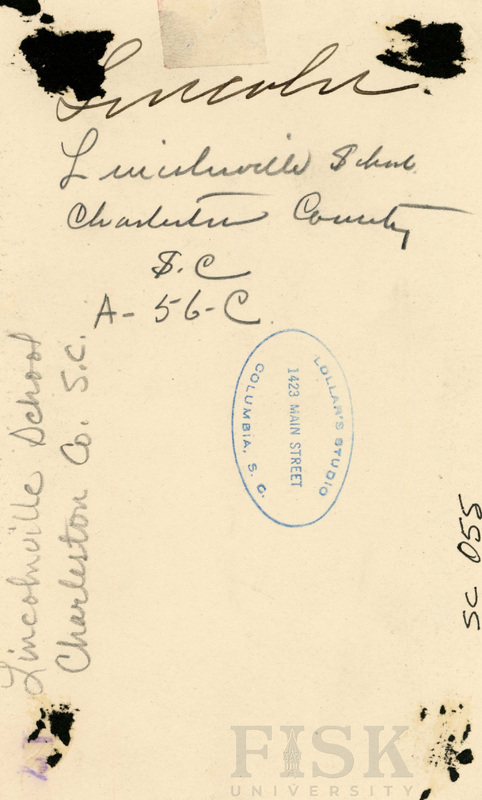 Lincoln
Lincolnville School
Charleston County
S.C
A-56-C
Lincolnville School
Charleston Co. S.C.
LOLLAR'S STUDIO
1423 MAIN STREET
COLUMBIA, S. C.
SC 055
FISK
UNIVERSITY